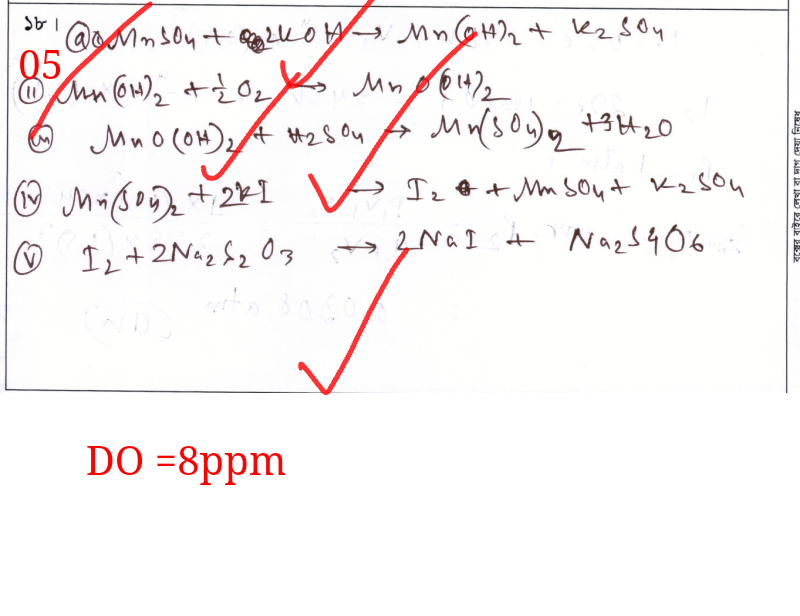 ১৮।
(a) (i) MnSO4 + 2KOH → Mn(OH)2 + K2SO4
05
(ii) Mn(OH)2 + ½O2 → MnO(OH)2
(iii) MnO(OH)2 + H2SO4 → Mn(SO4)2 + 3H2O
(iv) Mn(SO4)2 + 2KI → I2 + MnSO4 + K2SO4
(v) I2 + 2Na2S2O3 → 2NaI + Na2S4O6
DO =8ppm